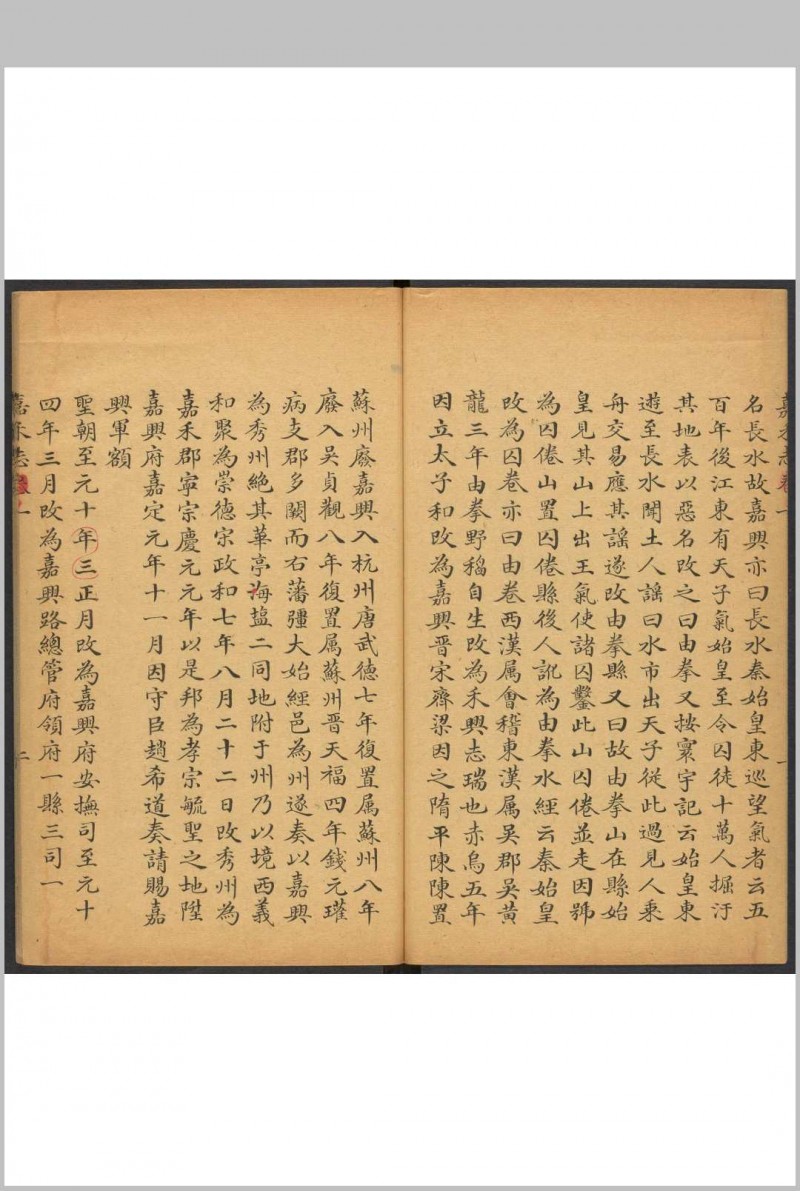 名長水故嘉興亦曰長水秦始皇東巡望氣者云五
百年後江東有天子氣始皇至令囚徒十萬人掘汙
其地表以惡名改之曰由拳又按寰宇記云始皇東
遊至長水聞土人謡曰水市出天子從此過見人乘
舟交易應其謡遂改由拳縣又曰故由拳山在縣始
皇見其山上出王氣使諸囚鑿此山囚倦並走因號
為囚倦山置囚倦縣後人訛為由拳水經云秦始皇
改為囚卷亦曰由卷西漢属會稽東漢属吴郡吴黄
龍三年由拳野稲自生改為禾興志瑞也赤烏五年
因立太子和改為嘉興晋宋齊梁因之隋平陳陳置
蘇州廢嘉興入杭州唐武德七年復置属蘇州八年
廢入吴貞觀八年復置属蘇州晋天福四年錢元瓘
病支郡多闕而右藩彊大始經邑為州遂奏以嘉興
為秀州絶其華亭海盐二同地附于州乃以境西義
和聚為崇德宗政和七年八月二十二日改秀州為
嘉禾郡寧宗慶元元年以是邦為孝宗毓聖之地陞
嘉興府嘉定元年十一月因守臣趙希道奏請賜嘉
興軍額
聖朝至元十年三正月改為嘉興府安撫司至元十
四年三月改為嘉興路總管府領府一縣三司一
二